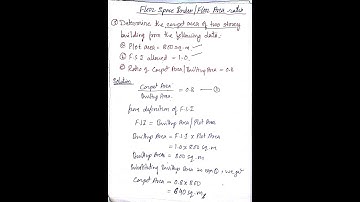 Floor Space Index / Floor Area ratio
③ Determine the carpet area of two storey
building from the following data:
① Plot area = 800 sq.m
② F.S.I allowed = 1.0
③ Ratio of Carpet Area / Builtup Area = 0.8
Solution
Carpet Area / Builtup Area = 0.8 — ①
from definition of F.S.I
F.S.I = Builtup Area / Plot Area
Builtup Area = F.S.I x Plot Area
= 1.0 x 800 sq.m
Builtup Area = 800 sq.m
Substituting Builtup Area in eqn ①, we get
Carpet Area = 0.8 x 800
= 640 sq.m